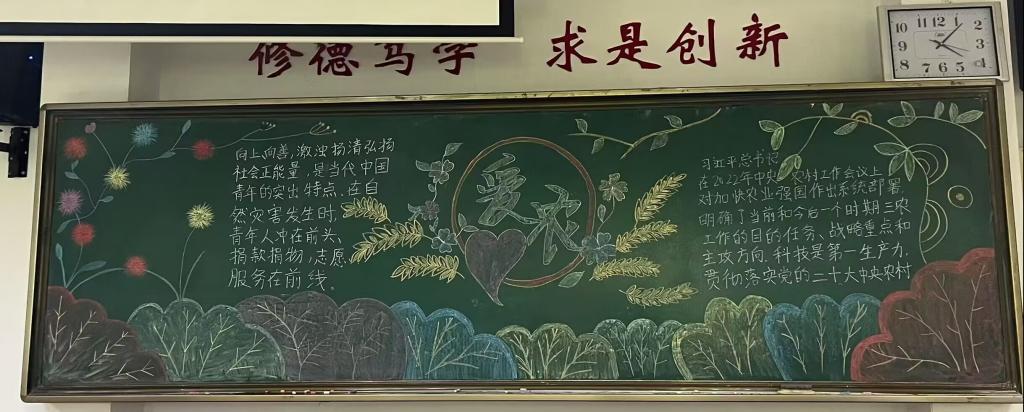 修德笃学 求是创新
向上向善,激浊扬清弘扬
社会正能量,是当代中国
青年的突出特点.在自
然灾害发生时,
青年人冲在前头、
捐款捐物,志愿
服务在前线.
爱农
习近平总书记
在2022年中央农村工作会议上
对加快农业强国作出系统部署.
明确了当前和今后一个时期三农
工作的目的任务、战略重点和
主攻方向.科技是第一生产力.
贯彻落实党的二十大中央农村
12
11
1
10
2
9
3
8
4
7
6
5